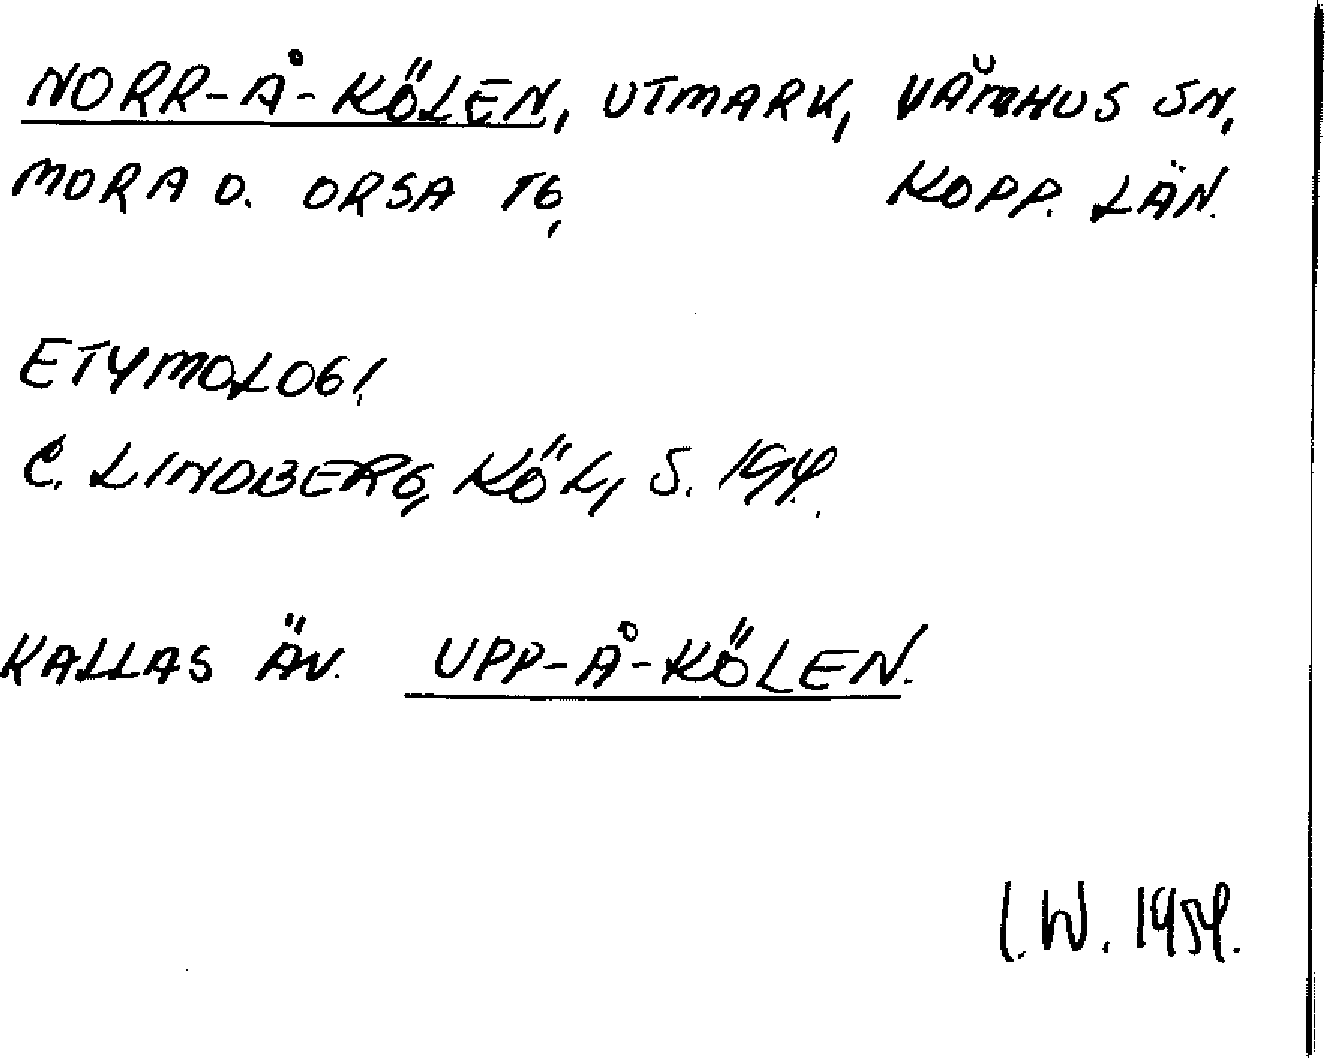 NORR-Å-KÖLEN, UTMARK, VÅMHUS SN,
MORA O. ORSA TG, KOPP. LÄN.
ETYMOLOGI.
C. LINDBERG, KÖL, S.
KALLAS ÄV. UPP-Å-KÖLEN.
I.W.